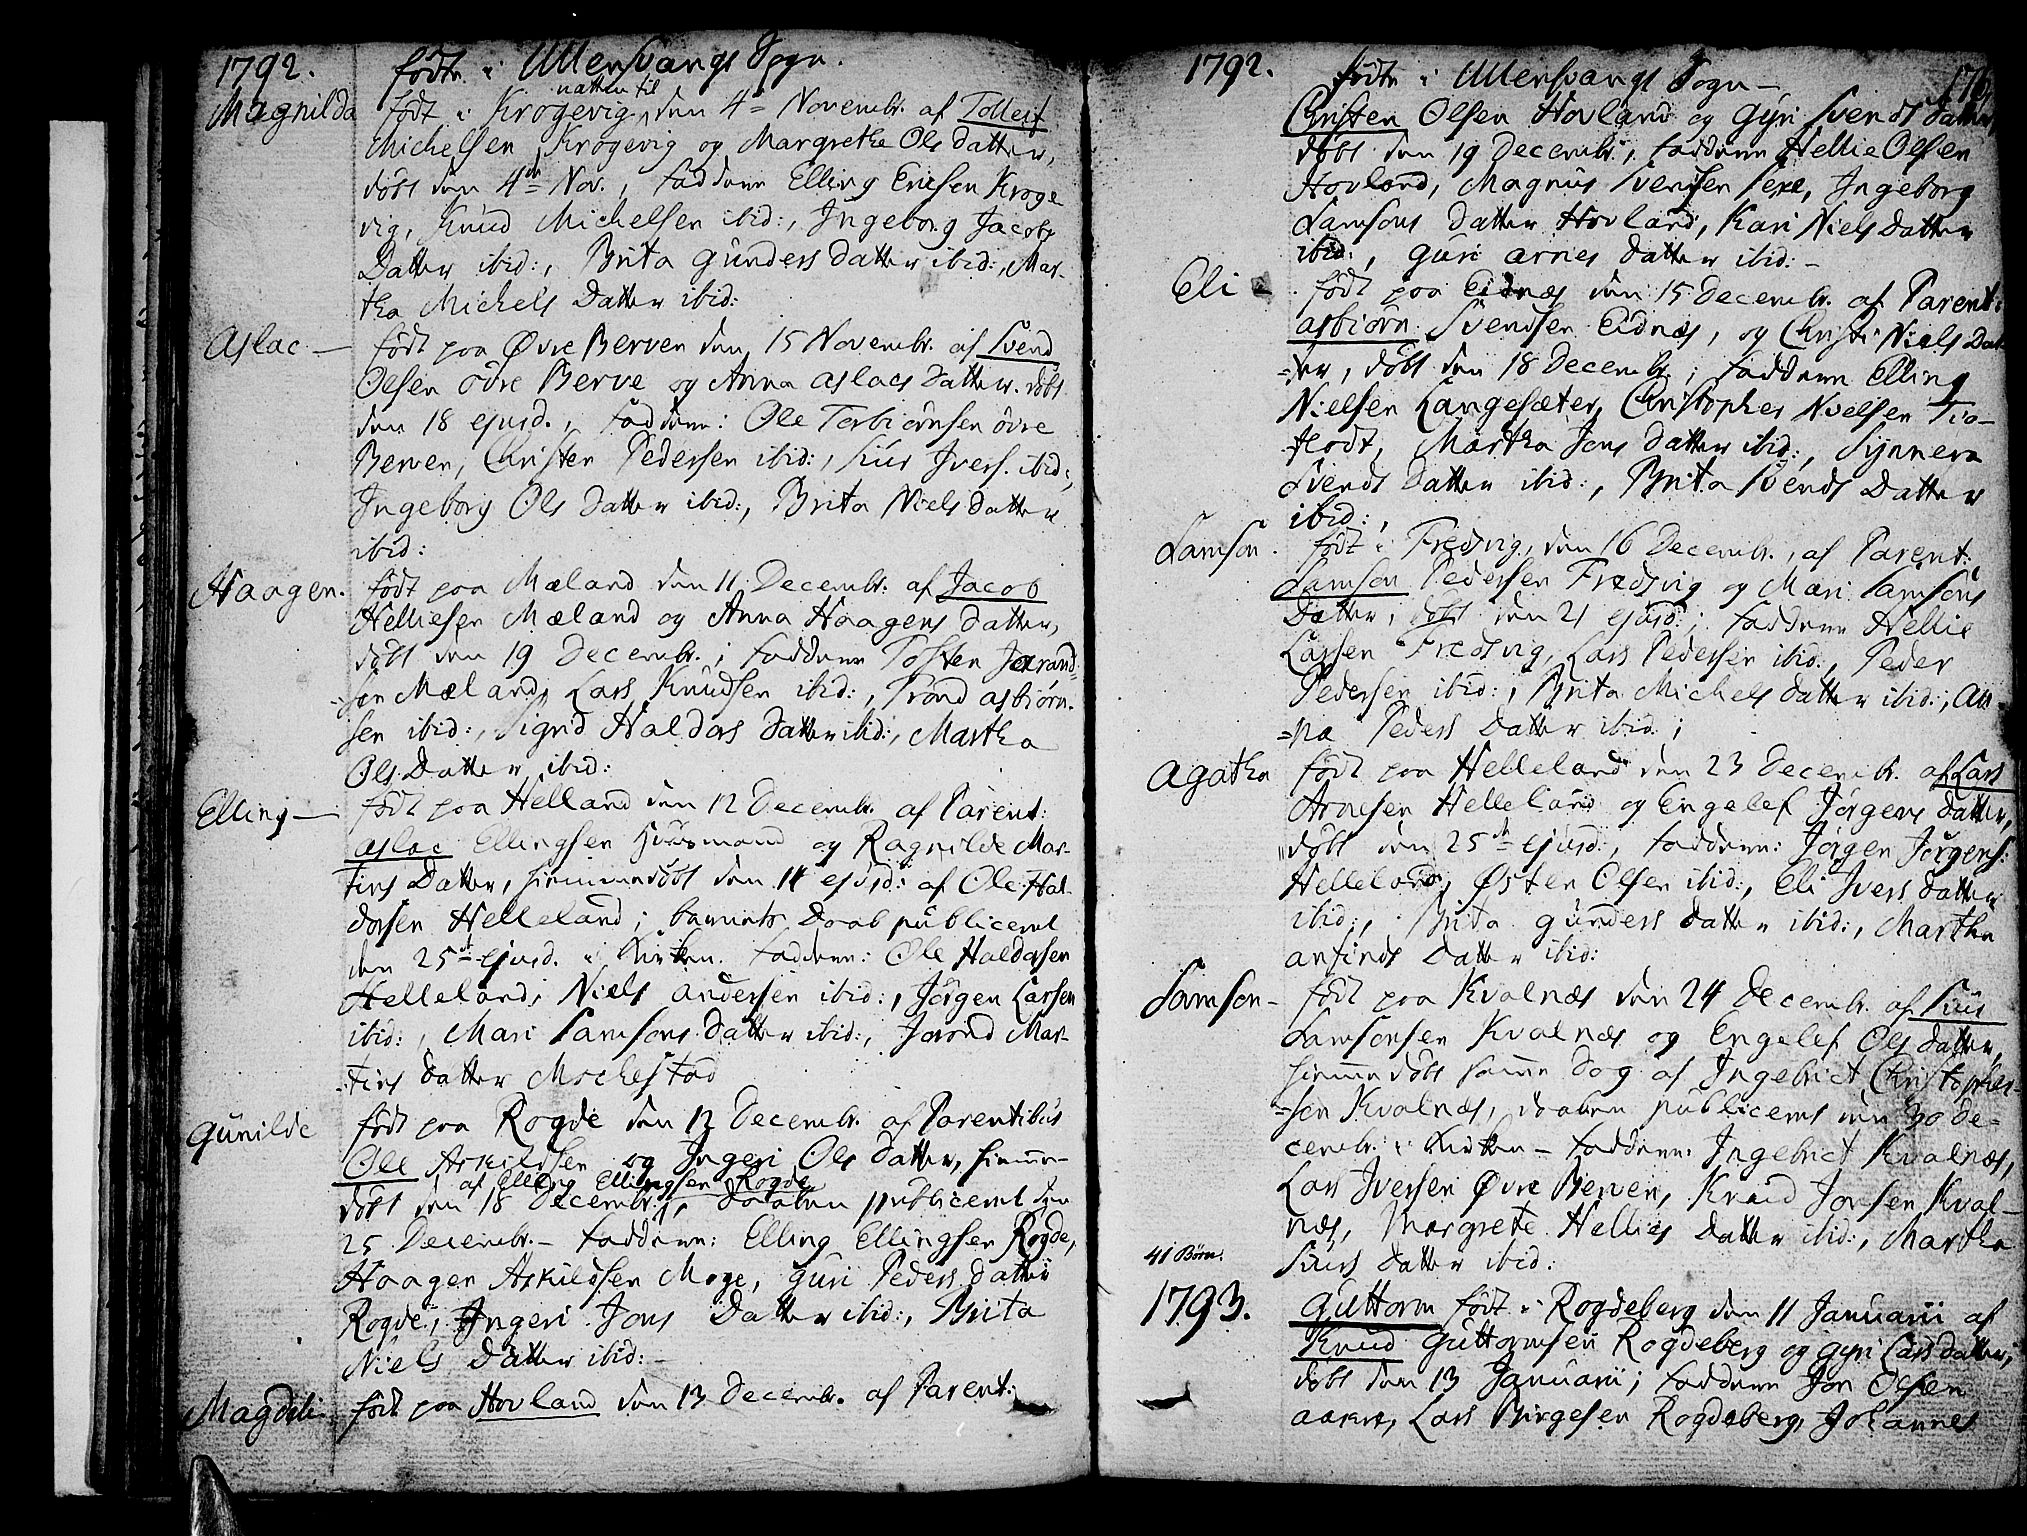 1792.
født i Ullensvangs Sogn.
Magnilda
født i Krogevig natten til den 4= Novembr. af Tollest
Michelsen Krogevig og Margrethe Ols datter,
døbt den 4de Nov., fadderne Elling Ericsen Kroge
vig, Knud Michelsen ibid:, Ingeborg Jacobs
Datter ibid:, Brita Gunders datter ibid:, Mar-
tha Michels Datter ibid:
Aslac —
født paa Øvre Berven den 15 Novembr. af Svend
Olsen øvre Berve og Anna Aslacs datter. døbt
den 18 ejusd., fadderne: Ole Torbiørnsen øvre
Berven, Christen Pedersen ibid:, Siur Ivers. ibid:,
Ingeborg Ols datter ibid:, Brita Niels datter
ibid:
Haagen.
født paa Mæland den 11 Decembr. af Jacob
Helliesen Mæland og Anna Haagens datter,
døbt den 19 Decembr.; fadderne Tosten Jorand=
-sen Mæland, Lars Knudsen ibid:, Trond Asbiørn-
sen ibid:, Sigrid Haldors datter ibid:, Martha
Ols Datter ibid:
Elling —
født paa Helland den 12 Decembr. af Parent:
Aslac Ellingsen Huusmand og Ragnilde Mar-
tins Datter, hiemmedøbt den 14 ejusd: af Ole Hal-
dorsen Helleland; barnets Daab publiceret
den 25de ejusd. i Kirken. fadderne: Ole Haldorsen
Helleland, Niels Andersen ibid:, Jørgen Larsen
ibid:, Mari Samsons datter ibid:, Jorond Mar-
-tins datter Mochestad
Gunilde
født paa Rogde den 12 Decembr. af Parentibus
Ole Askildsen og Ingeri Ols datter, hiemme-
døbt den 18 Decembr. af Elling Ellingsen Rogde, daaben publiceret den
25 Decembr. — fadderne: Elling Ellingsen Rogde,
Haagen Askildsen Moge, Guri Peders datter
Rogde, Ingeri Jons Datter ibid:, Brita
Niels Datter ibid: —
Magdeli
født paa Hovland den 13 Decembr. af Parent:
1792.
født i Ullensvangs Sogn —
Christen Olsen Hovland og Gyri Svends datter,
døbt den 19 Decembr, fadderne Hellie Olsen
Hovland, Magnus Svendsen Sexe, Ingeborg
Samsons Datter Hovland, Kari Niels Datter
ibid:, Guri Arnes Datter ibid: —
Eli —
født paa Eidnæs den 15 Decembr. af Parent:
Asbiørn Svendsen Eidnæs, og Christi Niels Dat
=ter, døbt den 18 Decembr; fadderne Elling
Nielsen Langesæter, Christopher Nielsen Tio-
flodt, Martha Jons datter ibid:, Synneva
Svends Datter ibid:, Brita Svends Datter
ibid:,
Samson.
født i Fredsvig, den 16 Decembr., af Parent:
Samson Pedersen Fredsvig og Mari Samsons
Datter, døbt den 21 ejusd:; fadderne Hellie
Larsen Fredsvig, Lars Pedersen ibid., Peder
Pedersen ibid:, Brita Michels datter ibid:, An-
=na Peders Datter ibid;
Agatha
født paa Helleland den 23 Decembr. af Lars
Arnesen Helleland og Engelef Jørgens datter,
døbt den 25de ejusd:, fadderne: Jørgen Jørgens:
Helleland, Østen Olsen ibid:, Eli Ivers datter
ibid:, Brita Gunders datter ibid:, Martha
Anfinds Datter ibid:
Samson —
født paa Kvalnæs den 24 Decembr. af Siur
Samsonsen Kvalnæs og Engelef Ols datter,
hiemmedøbt samme Dag af Ingebrict Christopher-
=sen Kvalnæs, daaben publiceret den 30 De-
cembr: i Kirken — fadderne: Ingebrict Kvalnæs,
Lars Iversen Øvre Berven, Knud Jonsen Kval-
næs, Margrete Hellies Datter ibid:, Martha
Siurs datter ibid:
41 Børn.
1793.
Guttorm født i Rogdeberg den 11 Januarii af
Knud Guttormsen Rogdeberg og Gyri Lars datter,
døbt den 13 Januarii; fadderne Jon Olsen
Aarre, Lars Birgesen Rogdeberg, Johannes